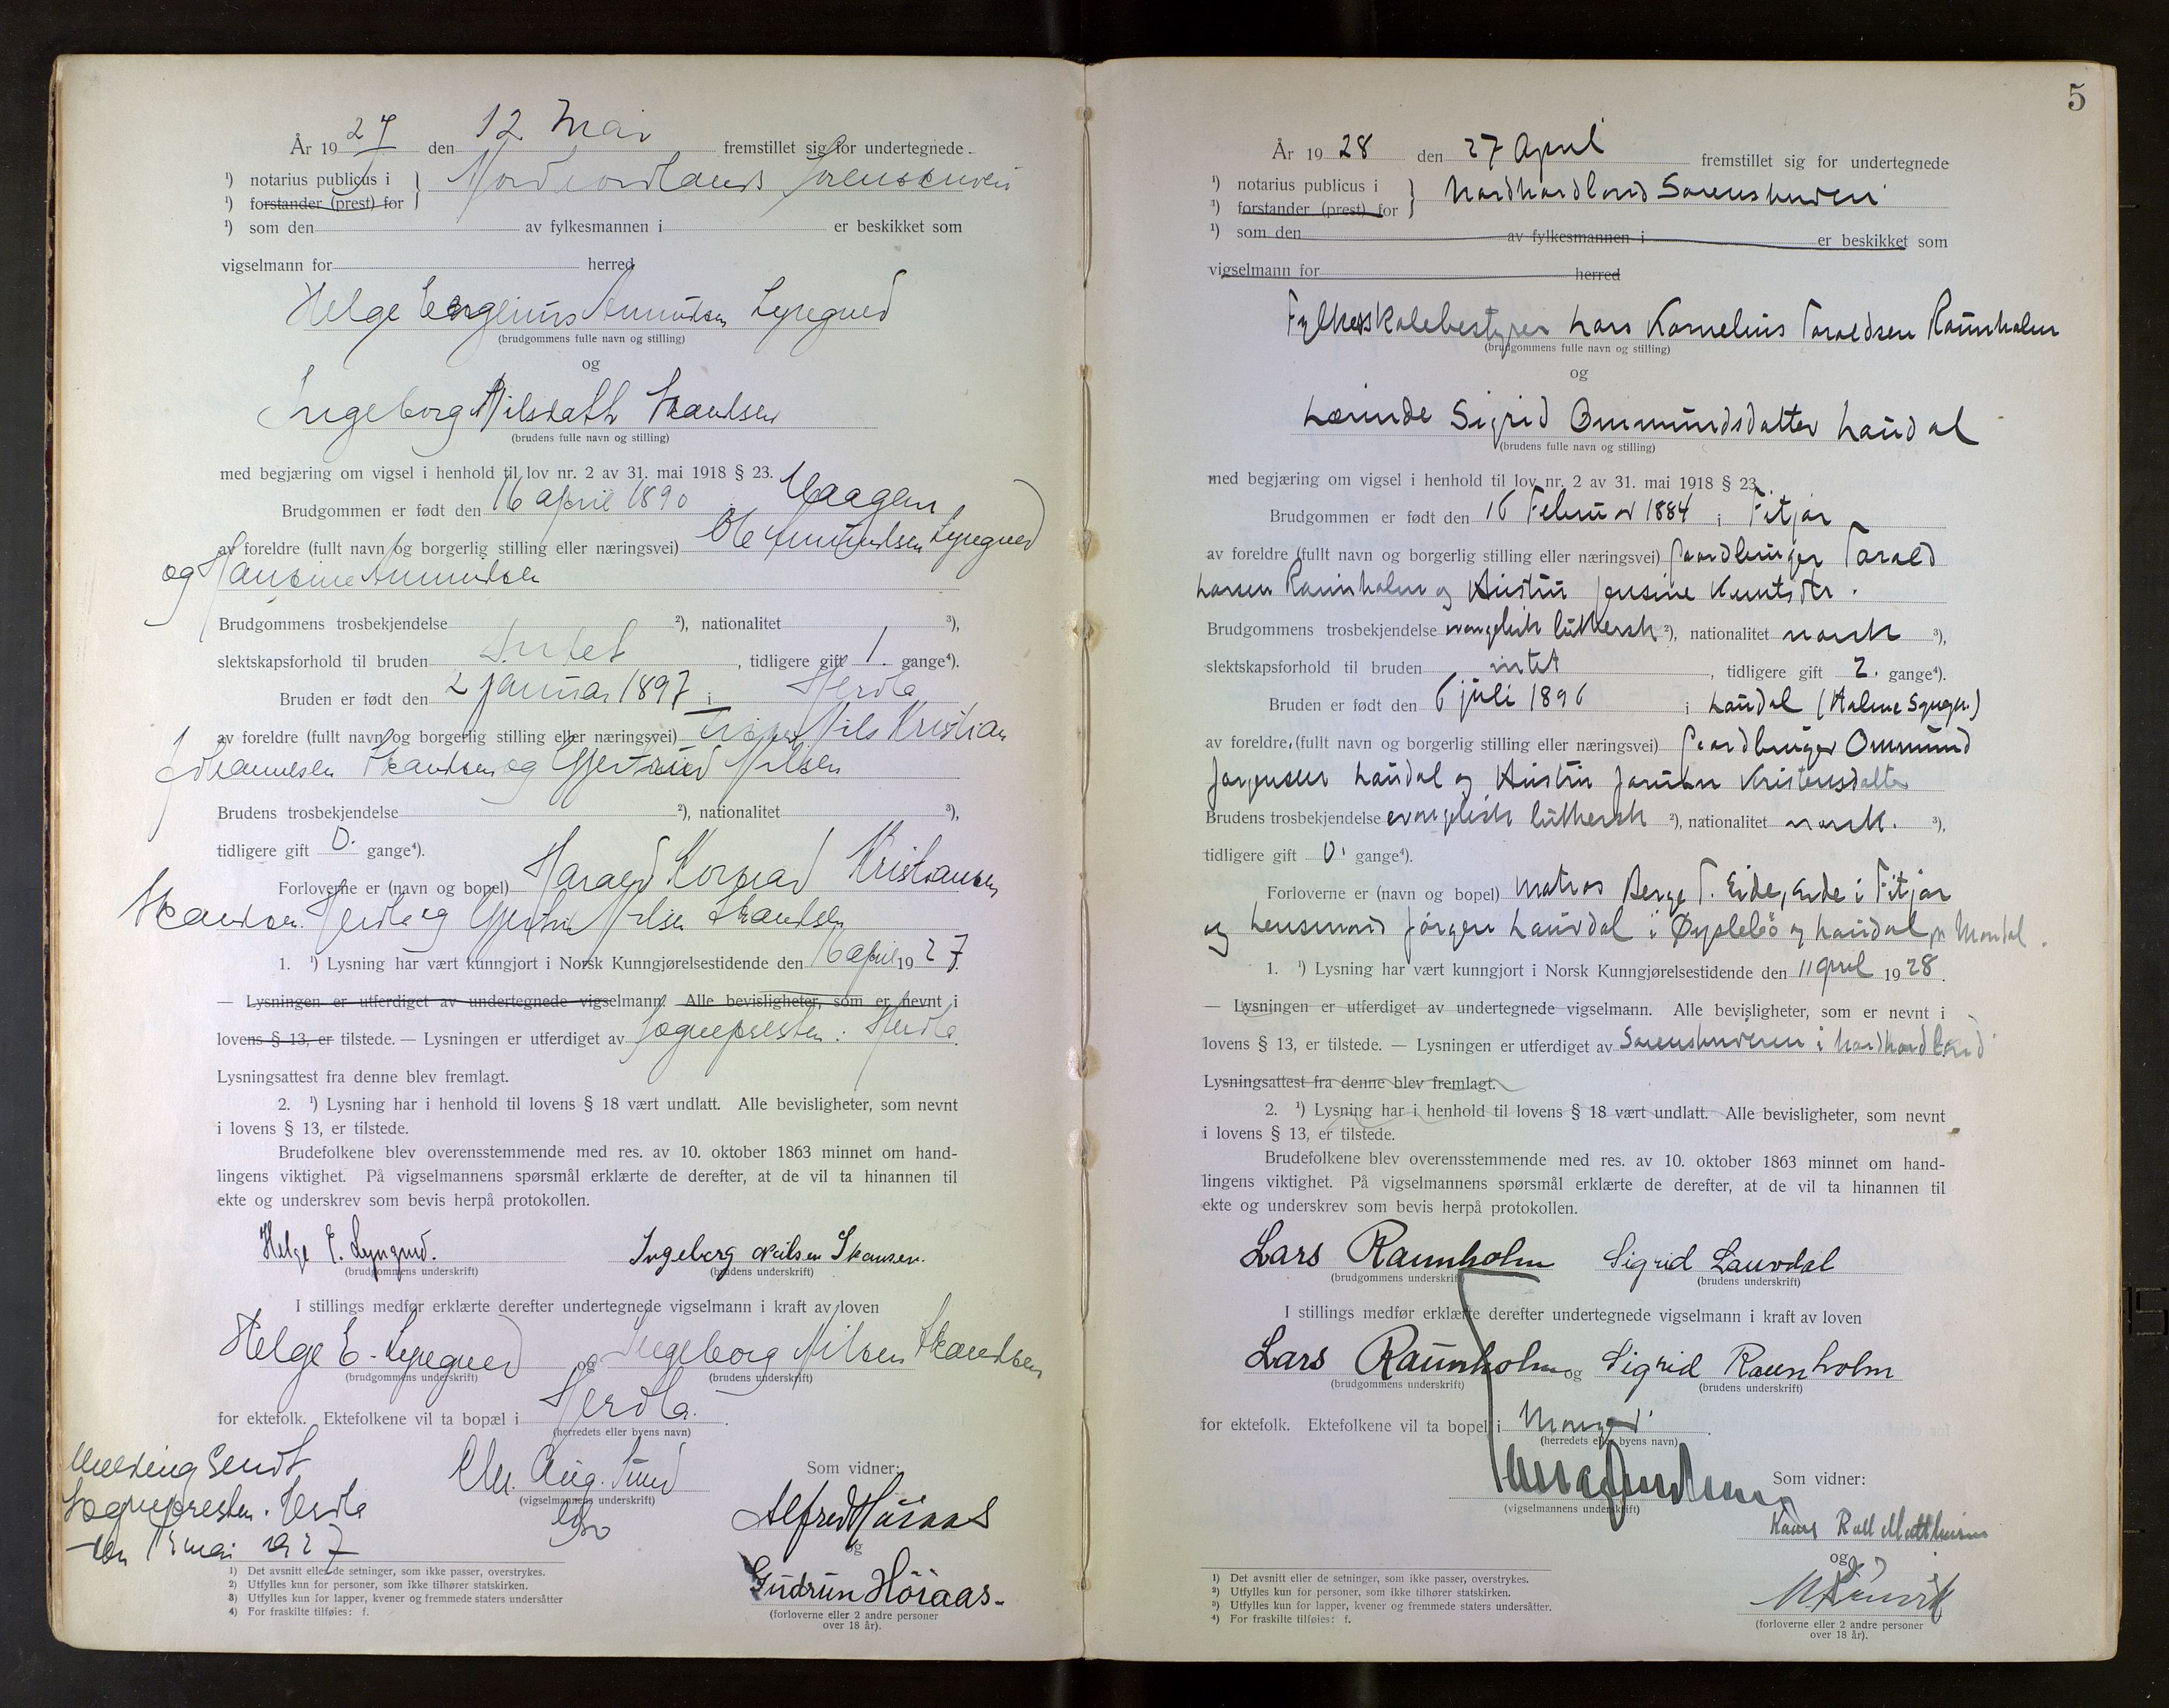 År 19 27 den 12 Mai fremstillet sig for undertegnede
¹) notarius publicus i
¹) forstander (prest) for
¹) som den av fylkesmannen i er beskikket som
vigselmann for herred
Helge Amundsen Lyngved
(brudgommens fulle navn og stilling)
og
Ingeborg Nilsdatter Skandsen
(brudens fulle navn og stilling)
med begjæring om vigsel i henhold til lov nr. 2 av 31. mai 1918 § 23.
Brudgommen er født den 16 april 1890
av foreldre (fullt navn og borgerlig stilling eller næringsvei) Ole Amundsen Lyngved
og Hansine Amundsen
Brudgommens trosbekjendelse ²), nationalitet ³),
slektskapsforhold til bruden Intet, tidligere gift 1. gange⁴).
Bruden er født den 2 januar 1897 i Herdla
av foreldre (fullt navn og borgerlig stilling eller næringsvei) Nils Kristian
Johannesen Skandsen og Gjertrud Nilsen
Brudens trosbekjendelse ²), nationalitet ³),
tidligere gift 0. gange⁴).
Forloverne er (navn og bopel) Harald Konrad Kristiansen
Skandsen. Herdla og Nilsen Skandsen
1. ¹) Lysning har vært kunngjort i Norsk Kunngjørelsestidende den 16 april 19 27.
— Lysningen er utferdiget av undertegnede vigselmann. Alle bevisligheter, som er nevnt i
lovens § 13, er tilstede. — Lysningen er utferdiget av Sognepresten i Herdla.
Lysningsattest fra denne blev fremlagt.
2. ¹) Lysning har i henhold til lovens § 18 vært undlatt. Alle bevisligheter, som nevnt
i lovens § 13, er tilstede.
Brudefolkene blev overensstemmende med res. av 10. oktober 1863 minnet om hand-
lingens viktighet. På vigselmannens spørsmål erklærte de derefter, at de vil ta hinannen til
ekte og underskrev som bevis herpå protokollen.
Helge E. Lyngved. Ingeborg Nilsen Skansen.
(brudgommens underskrift) (brudens underskrift)
I stillings medfør erklærte derefter undertegnede vigselmann i kraft av loven
Helge E. Lyngved og Ingeborg Nilsen Skandsen
(brudgommens underskrift) (brudens underskrift)
for ektefolk. Ektefolkene vil ta bopæl i Herdla.
(herredets eller byens navn)
Melding sendt
Sognepresten i Herdla
den 13 mai 1927
Chr. Aug.
(vigselmannens underskrift)
Som vidner:
Alfred Höiaas
og
Gudrun Höiaas.
(forloverne eller 2 andre personer
over 18 år).
1) Det avsnitt eller de setninger, som ikke passer, overstrykes.
2) Utfylles kun for personer, som ikke tilhører statskirken.
3) Utfylles kun for lapper, kvener og fremmede staters undersåtter
4) For fraskilte tilføies: f.
5
År 19 28 den 27 April fremstillet sig for undertegnede
¹) notarius publicus i
¹) forstander (prest) for
Nordhordland Sorenskriveri
¹) som den av fylkesmannen i er beskikket som
vigselmann for herred
Fylkesskolebestyrer Lars Kornelius Taraldsen Raunholm
(brudgommens fulle navn og stilling)
og
Lærinde Sigrid Ommundsdatter Laudal
(brudens fulle navn og stilling)
med begjæring om vigsel i henhold til lov nr. 2 av 31. mai 1918 § 23.
Brudgommen er født den 16 Februar 1884 i Fitjar
av foreldre (fullt navn og borgerlig stilling eller næringsvei) Gaardbruger Tarald
Larsen Raunholm og Hustru Jensine Knutsdtr.
Brudgommens trosbekjendelse evangelisk luthersk ²), nationalitet norsk ³),
slektskapsforhold til bruden intet, tidligere gift 2. gange⁴).
Bruden er født den 6 juli 1896 i Laudal (Halme Sogn.)
av foreldre, (fullt navn og borgerlig stilling eller næringsvei) Gaardbruger Ommund
Jørgensen Laudal og Hustru Kristensdatter
Brudens trosbekjendelse evangelisk luthersk ²), nationalitet norsk. ³),
tidligere gift 0. gange⁴).
Forloverne er (navn og bopel) matros Berge T. Eide, Eide i Fitjar
og lensmand Jørgen Lauvdal i Øyslebö og Laudal pr Mandal.
1. ¹) Lysning har vært kunngjort i Norsk Kunngjørelsestidende den 11 april 19 28.
— Lysningen er utferdiget av undertegnede vigselmann. Alle bevisligheter, som er nevnt i
lovens § 13, er tilstede. — Lysningen er utferdiget av Sorenskriveren i Nordhordland
Lysningsattest fra denne blev fremlagt.
2. ¹) Lysning har i henhold til lovens § 18 vært undlatt. Alle bevisligheter, som nevnt
i lovens § 13, er tilstede.
Brudefolkene blev overensstemmende med res. av 10. oktober 1863 minnet om hand-
lingens viktighet. På vigselmannens spørsmål erklærte de derefter, at de vil ta hinannen til
ekte og underskrev som bevis herpå protokollen.
Lars Raunholm Sigrid Lauvdal
(brudgommens underskrift) (brudens underskrift)
I stillings medfør erklærte derefter undertegnede vigselmann i kraft av loven
Lars Raunholm og Sigrid Raunholm
(brudgommens underskrift) (brudens underskrift)
for ektefolk. Ektefolkene vil ta bopel i Manger
(herredets eller byens navn)
(vigselmannens underskrift)
Som vidner:
Hans Roll Matthiesen
og
(forloverne eller 2 andre personer
over 18 år).
1) Det avsnitt eller de setninger, som ikke passer, overstrykes.
2) Utfylles kun for personer, som ikke tilhører statskirken.
3) Utfylles kun for lapper, kvener og fremmede staters undersåtter.
4) For fraskilte tilføies: f.